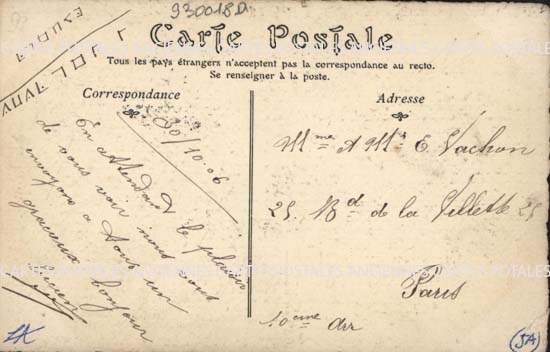 930018D
97
Carte Postale
Tous les pays étrangers n'acceptent pas la correspondance au recto.
Se renseigner à la poste.
Correspondance
Adresse
30/10-06
En attendant le plaisir
de vous voir nous vous
envoyons à tous un
gracieux bonjour
Mme A Mr E. Vachon
25 Bd de la Villette 25
Paris
10eme Arr